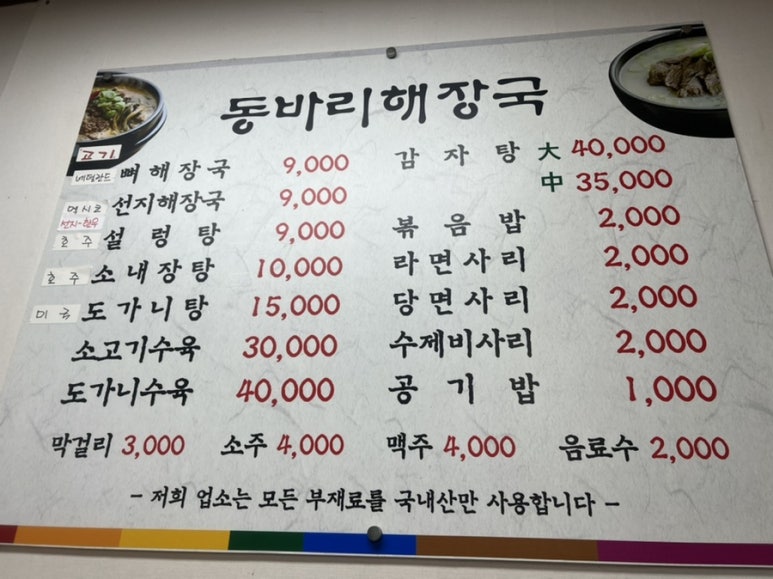 동바리해장국
고기
네덜란드 뼈해장국 9,000
멕시코 선지해장국 9,000
선지-한우
호주 설렁탕 9,000
호주 소내장탕 10,000
미국 도가니탕 15,000
소고기수육 30,000
도가니수육 40,000
감자탕 大 40,000
中 35,000
볶음밥 2,000
라면사리 2,000
당면사리 2,000
수제비사리 2,000
공기밥 1,000
막걸리 3,000 소주 4,000 맥주 4,000 음료수 2,000
- 저희 업소는 모든 부재료를 국내산만 사용합니다 -